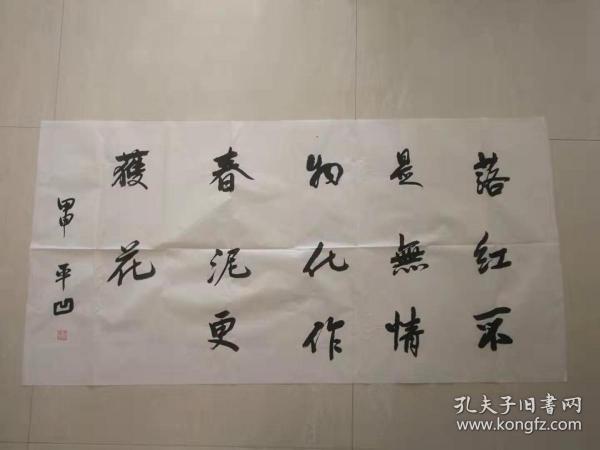 落红不
是無情
物化作
春泥更
獲花
甲申 平凹
孔夫子旧書网
www.kongfz.com